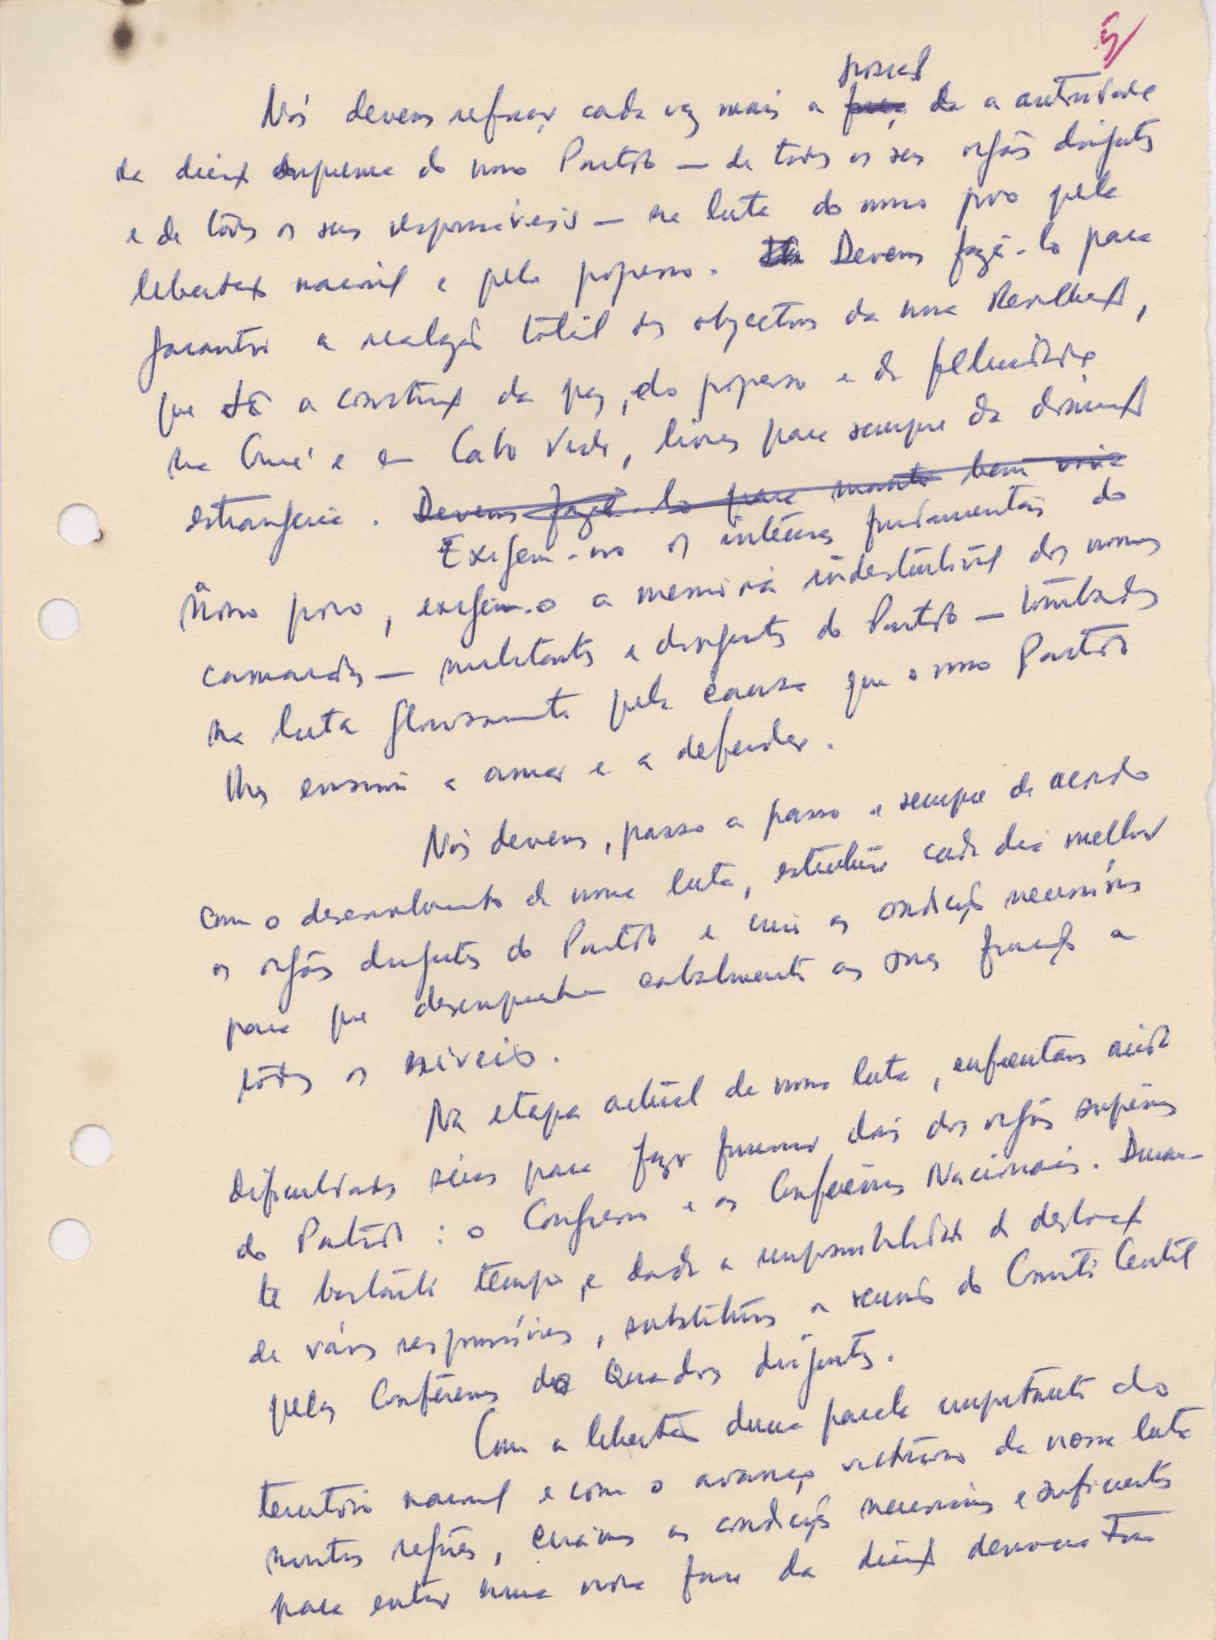 5
Nós devemos reforçar cada vez mais a força da a autoridade
da direcção suprema do nosso Partido — de todos os seus orgãos dirigentes
e de todos os seus responsáveis — na luta do nosso povo pela
libertação nacional e pelo progresso. Devemos fazê-lo para
garantir a realização total dos objectivos da nossa Revolução,
que são a construção da paz, do progresso e da felicidade
na Guiné e em Cabo Verde, livres para sempre da dominação
estrangeira. Devemos fazê-lo para manter bem viva
Exigem-no os interesses fundamentais do
nosso povo, exigem-no a memória indestrutível dos nossos
camaradas — militantes e dirigentes do Partido — tombados
na luta gloriosamente pela causa que o nosso Partido
lhes ensinou a amar e a defender.
Nós devemos, passo a passo e sempre de acordo
com o desenvolvimento da nossa luta, estruturar cada dia melhor
os orgãos dirigentes do Partido e criar as condições necessárias
para que desempenhem cabalmente as suas funções a
todos os níveis.
Na etapa actual da nossa luta, enfrentamos ainda
dificuldades sérias para fazer funcionar dois dos orgãos supremos
do Partido: o Congresso e as Conferências Nacionais. Duran-
te bastante tempo, e dada a impossibilidade de deslocação
de vários responsáveis, substituímos a reunião do Comité Central
pelas Conferências de Quadros dirigentes.
Com a libertação duma parcela importante do
território nacional e com o avanço vitorioso da nossa luta
noutras regiões, criámos as condições necessárias e suficientes
para entrar numa nova fase da direcção democrática